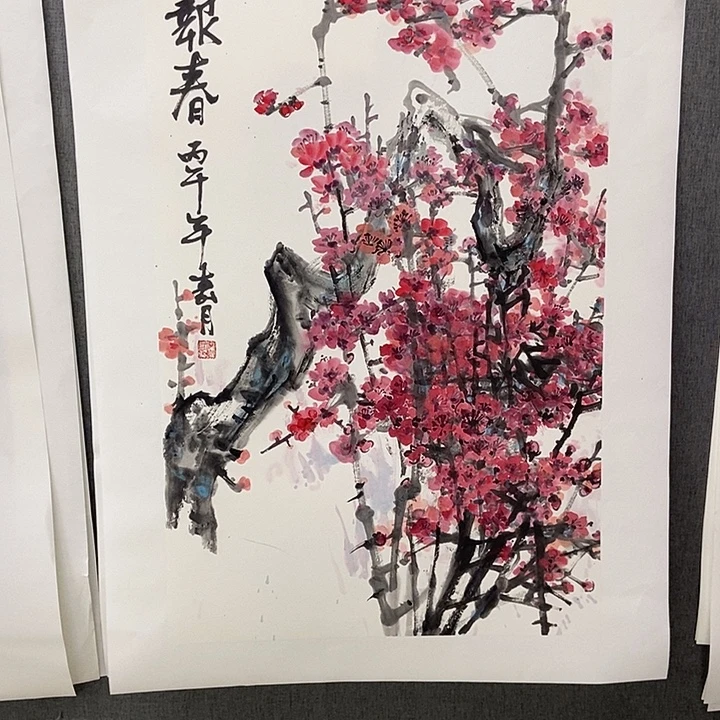 報春 丙午年春月